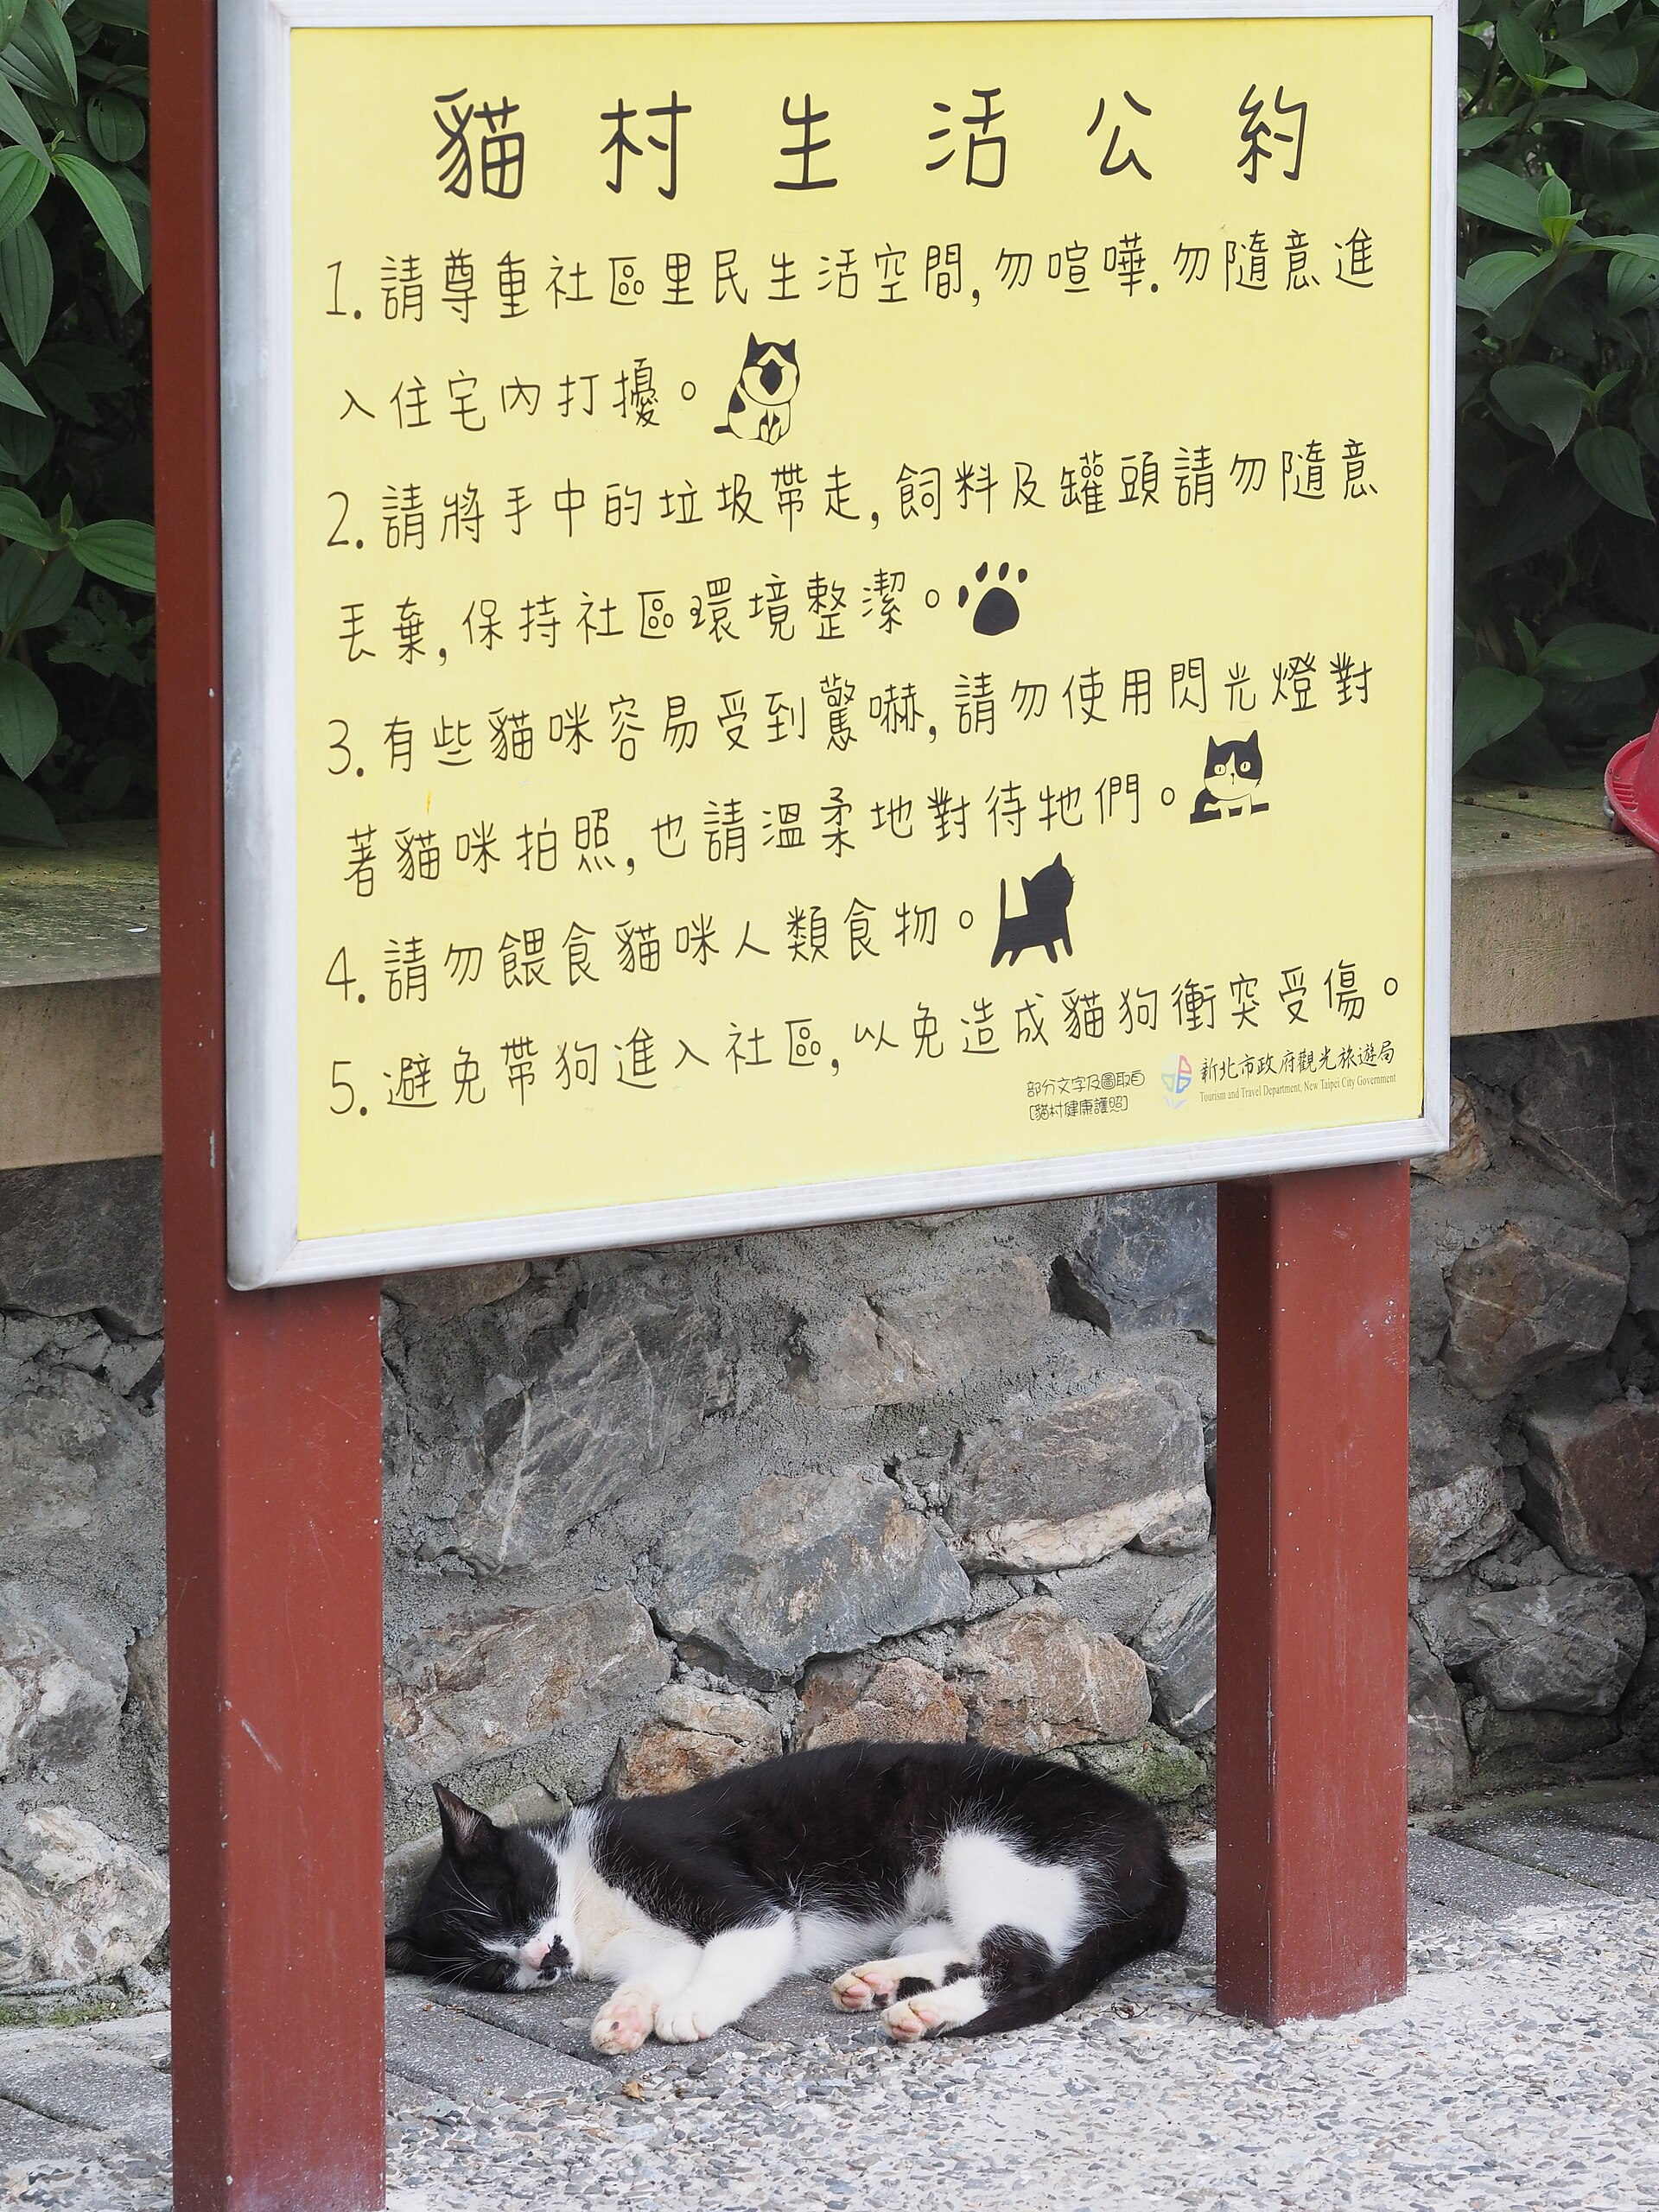 貓村生活公約
1. 請尊重社區里民生活空間,勿喧嘩.勿隨意進
入住宅內打擾。
2. 請將手中的垃圾帶走,飼料及罐頭請勿隨意
丟棄,保持社區環境整潔。
3. 有些貓咪容易受到驚嚇,請勿使用閃光燈對
著貓咪拍照,也請溫柔地對待牠們。
4. 請勿餵食貓咪人類食物。
5. 避免帶狗進入社區,以免造成貓狗衝突受傷。
部分文字及圖取自
[貓村健康護照]
新北市政府觀光旅遊局
Tourism and Travel Department, New Taipei City Government